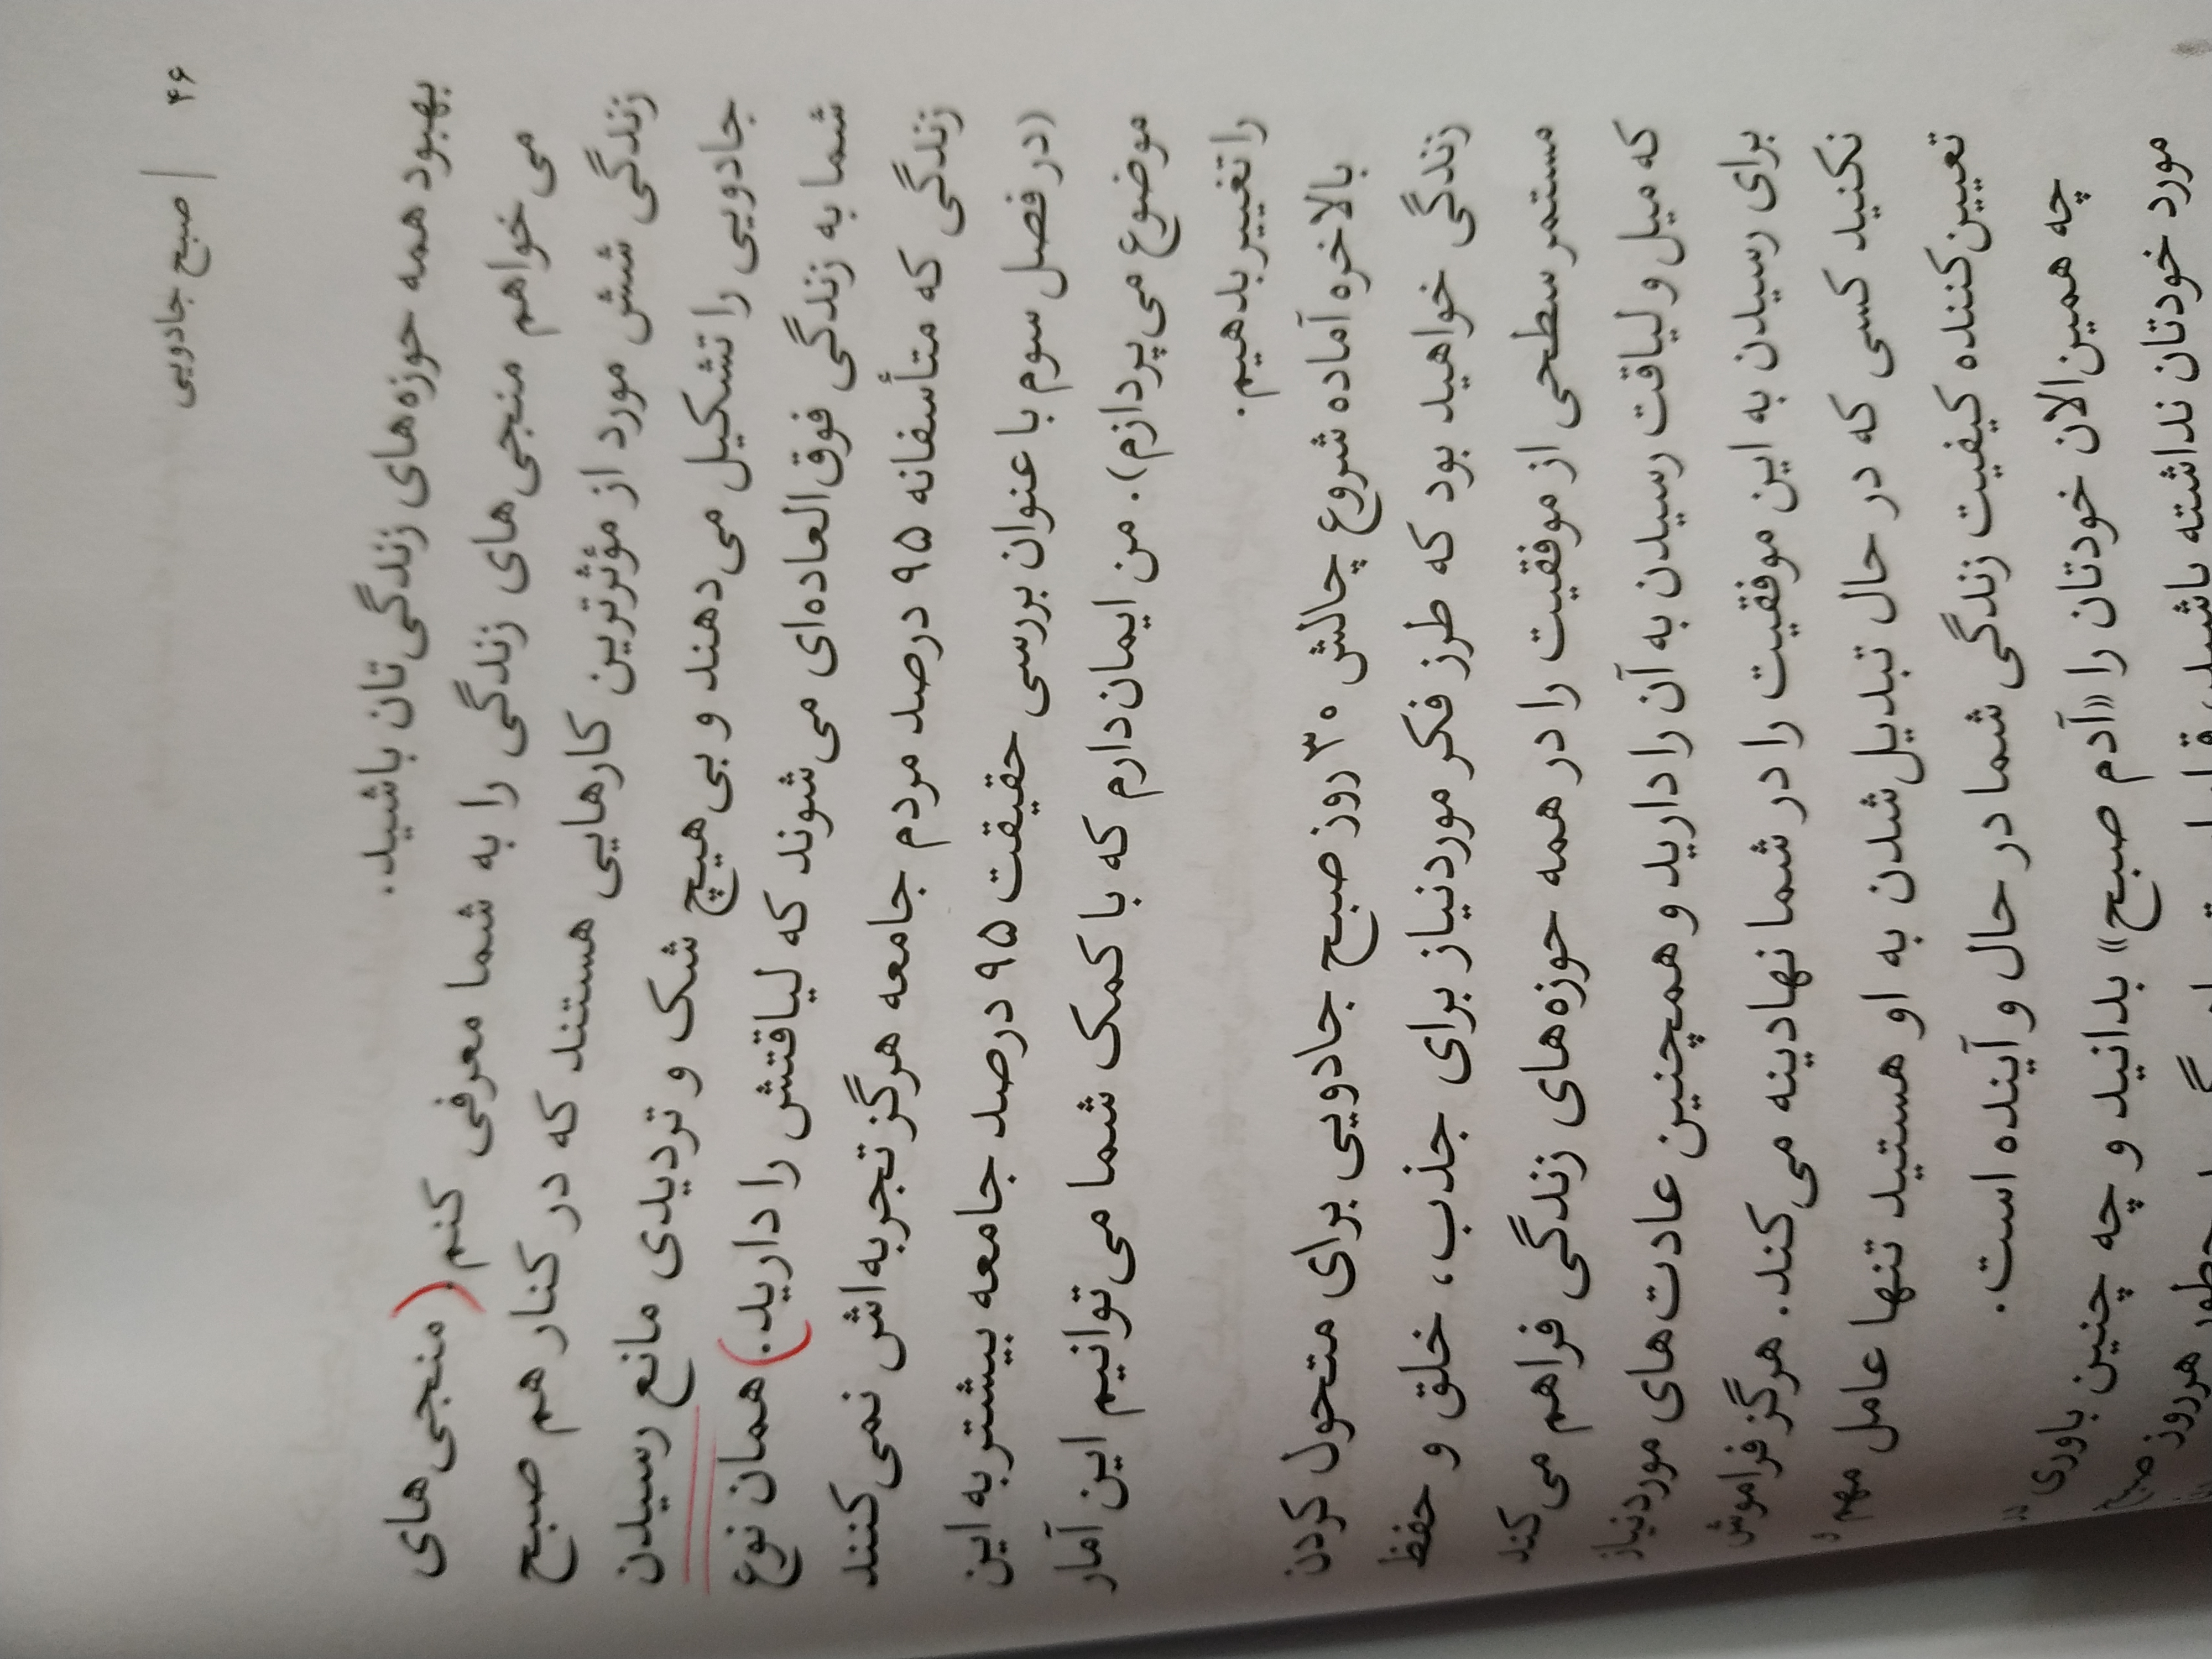 ۴۶ | صبح جادویی
بهبود همه حوزه‌های زندگی‌تان باشید.
می‌خواهم منجی‌های زندگی را به شما معرفی کنم. (منجی‌های
زندگی شش مورد از مؤثرترین کارهایی هستند که در کنار هم صبح
جادویی را تشکیل می‌دهند و بی‌هیچ شک و تردیدی مانع رسیدن
شما به زندگی فوق‌العاده‌ای می‌شوند که لیاقتش را دارید.) همان نوع
زندگی که متأسفانه ۹۵ درصد مردم جامعه هرگز تجربه‌اش نمی‌کنند
(در فصل سوم با عنوان بررسی حقیقت ۹۵ درصد جامعه بیشتر به این
موضوع می‌پردازم). من ایمان‌دارم که با کمک شما می‌توانیم این آمار
را تغییر بدهیم.
بالاخره آماده شروع چالش ۳۰ روز صبح جادویی برای متحول کردن
زندگی خواهید بود که طرز فکر موردنیاز برای جذب، خلق و حفظ
مستمر سطحی از موفقیت را در همه حوزه‌های زندگی فراهم می‌کند
که میل و لیاقت رسیدن به آن را دارید و همچنین عادت‌های موردنیاز
برای رسیدن به این موفقیت را در شما نهادینه می‌کند. هرگز فراموش
نکنید کسی که در حال تبدیل‌شدن به او هستید تنها عامل مهم و
تعیین‌کننده کیفیت زندگی شما در حال و آینده است.
چه همین‌الان خودتان را «آدم صبح» بدانید و چه چنین باوری در
مورد خودتان نداشته باشید، قرار است یاد بگیرید چطور هر روز صبح